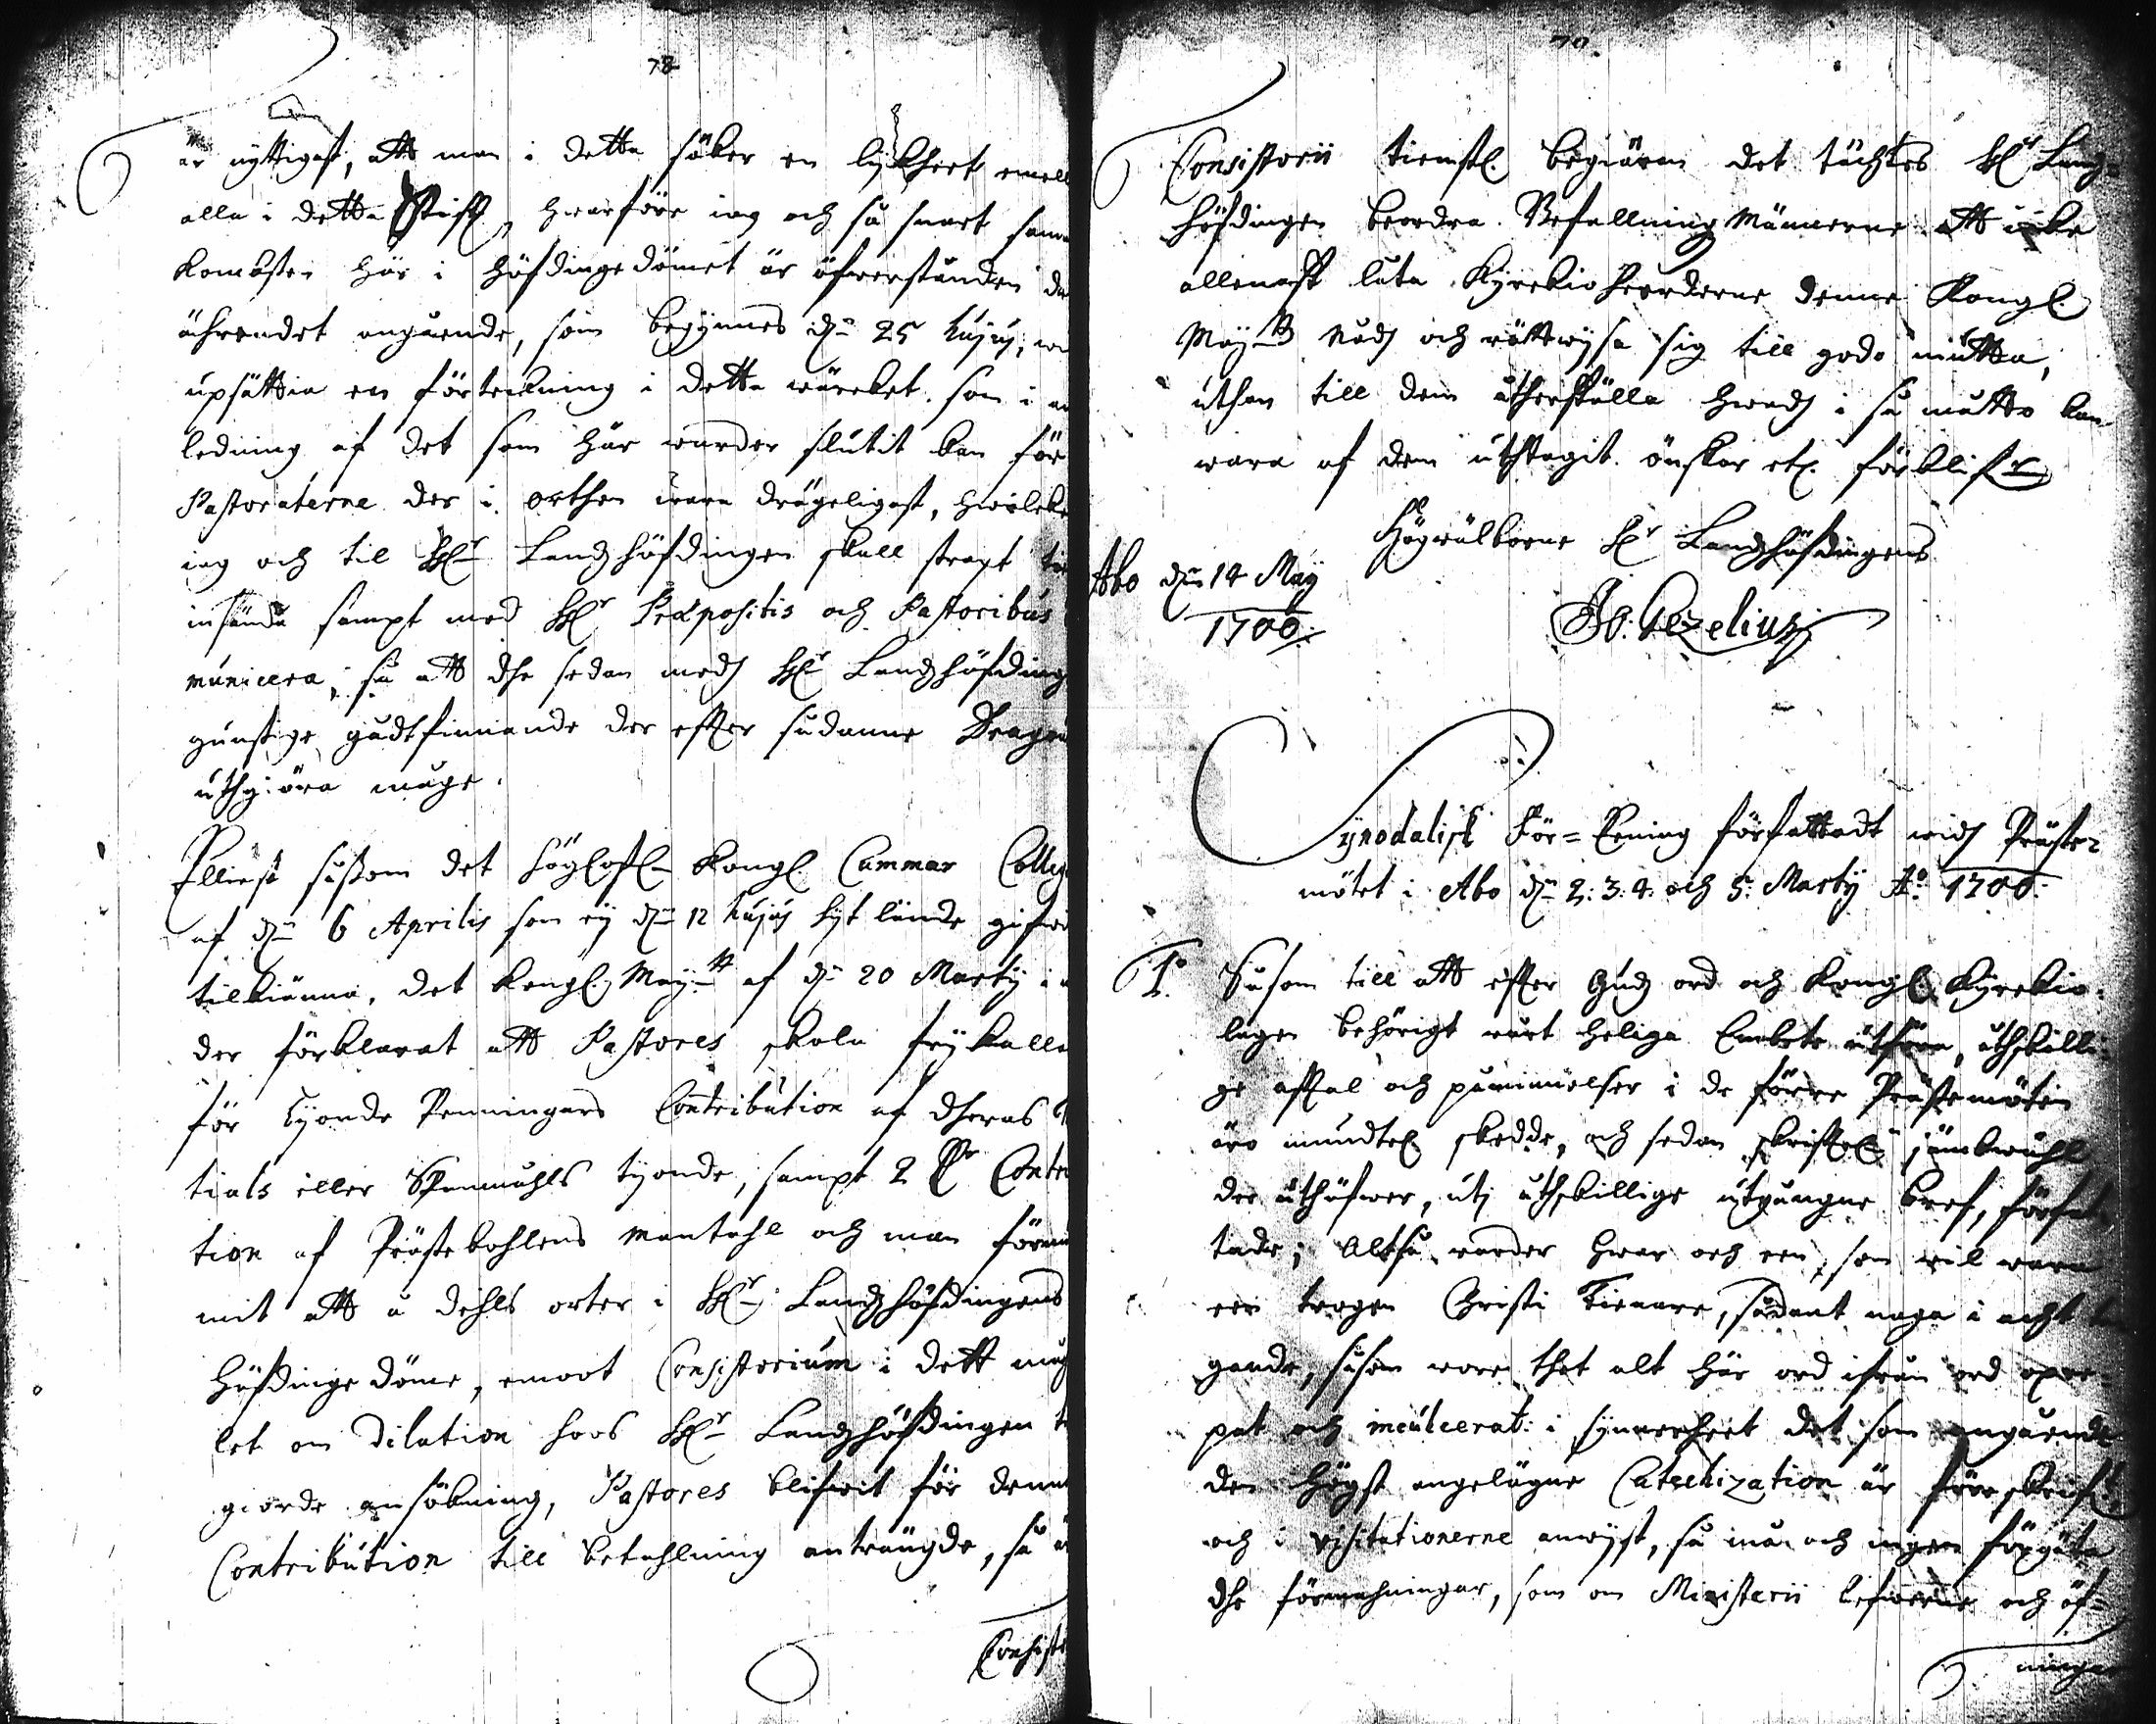 78
är nyttigast, att man i detta söker en lijkheet emell
alla i detta Stift, hwarföre iag och så snart samman
komsten här i höfdingedömet är öfwerstånden, da
ährendet angående, som begynnes d. 25 hujus, wil
upsättia en förteckning i detta wärcket, som i an
ledning af det som här warder slutit kan för
Pastoraterne der i orthen wara drägeligast, hwilcket
iag och til H:r Landzhöfdingen skall straxt
insända sampt med H:r Præpositis och Pastoribus
municera, så att dhe sedan medh H:r Landzhöfdings
gunstige gådtfinnande der efter sådanne
uthgiöra måge.
Elliest såssom det höglofl. Kongl. Cammar Colleg
af d. 6 Aprilis som ey d. 12 hujus hijt lände gifwer
tilkiänna, det Kongl. May:tt af d. 20 Martij
der förklarat att Pastores skola frijkallas
för Tijonde Penningars Contribution af dheras
tials eller Spanmåhls tijonde, sampt 2 Contri
tion af Prästebohlens mantahl och man förnum
mit att å dehls orter i H:r Landzhöfdingens
höfdinge döme, emoot Consistorium i dett
let om Dilation hoos H:r Landzhöfdingen
giorde ansökning, Pastores blifwit för denne
Contribution till betahlning anträngde, så är
Consist
79.
Consistorii tienstl. begiären det täcktes H:r Landz-
höfdingen beordra Befallningzmännerne att icke
allenast låta Kyrckioherderne denne Kongl.
May:tz nådh och rättwijsa sig till godo niutta,
uthan till dem återställa hwadh i så måtto kan
wara af dem uthtagit. önskar etc. förblifr
Högwälborne H:r Landzhöfdingens
Abo d. 14 Maij
1700.
Jo: Gezelius
Synodalisk För-Eening författadt widh Präste-
mötet i Abo d. 2. 3. 4. och 5. Martij A:o 1700.
1:o Såsom till att efter Gudz ord och Kongl. Kyrckio-
lagen behörigt wårt heliga Embete utföra, åthskilli-
ge aftal och påminnelser i de förre Prästemöten
äro mundtel. skedde, och sedan skriftel. jämbwähl
der uthöfwer, uti åthskillige utgångne bref, förfat-
tade; Altså warder hwar och een, som wil wara
een trogen Christi Tienare, sådant noga i acht ta
gande, såsom wore thet alt här ord ifrån ord
pat och inculcerat: i synnerheet det som angående
den högst angelägne Catechization är föreskrifwit
och i visitationerne anwijst, så må och ingen förgäta
dhe förmahningar, som om Ministerii lefwerne och öf-
ningar